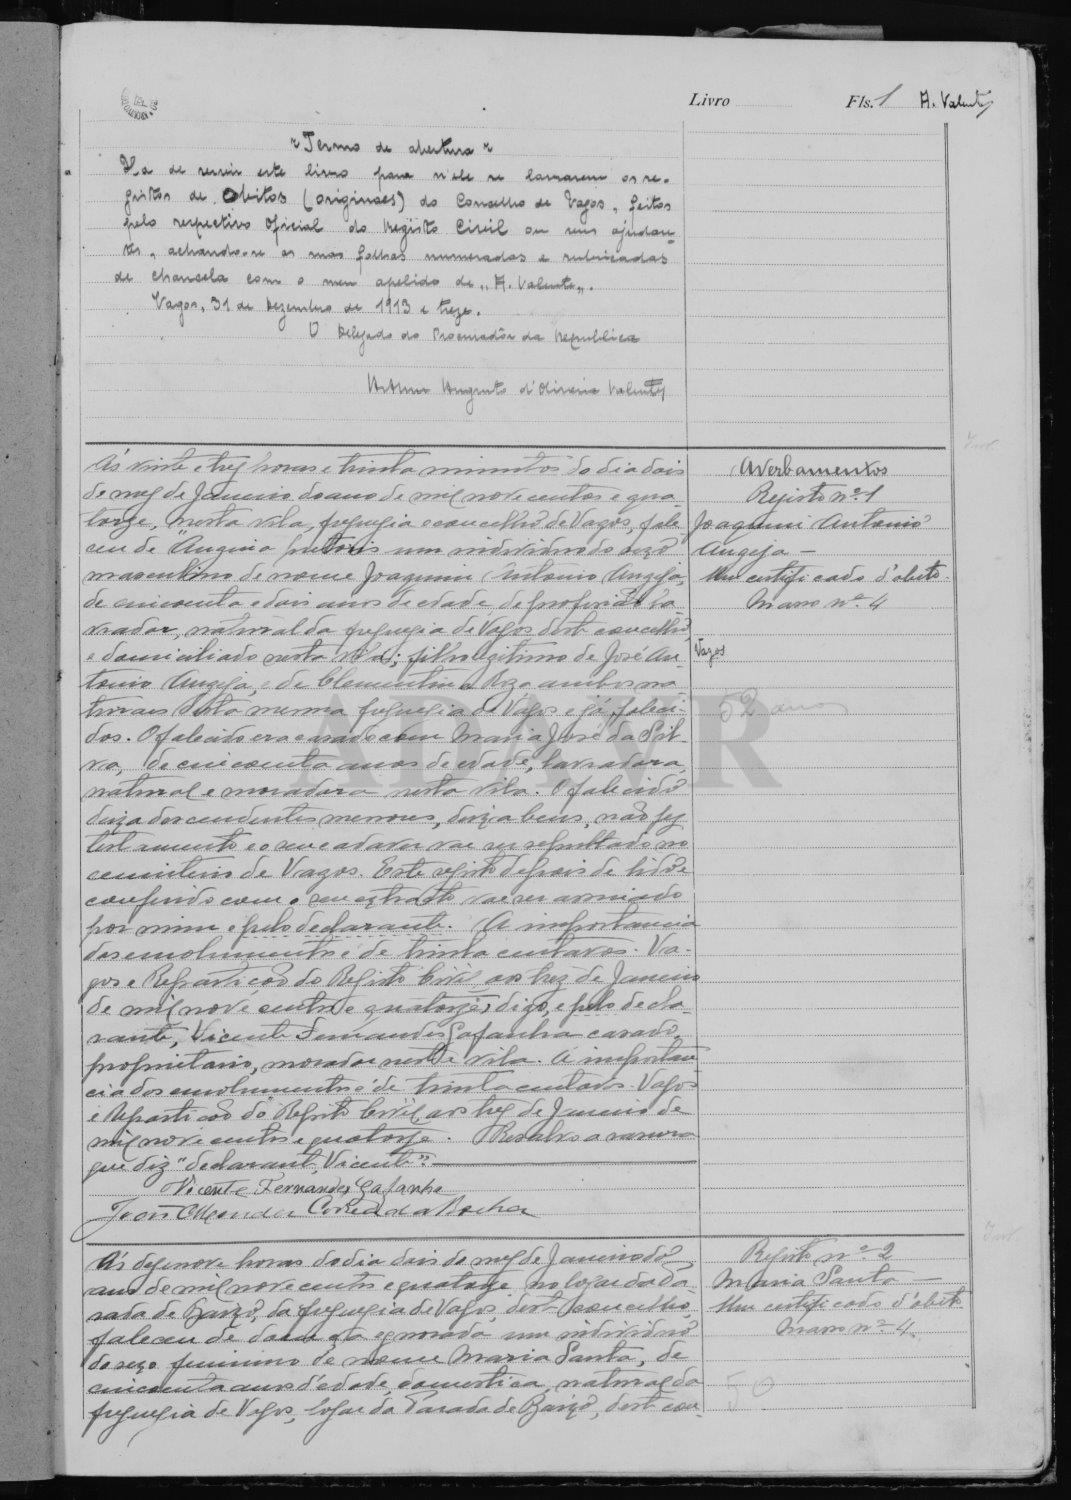 Livro Fls. 1 A. Valente
"Termo de abertura"
Ha de servir este livro para n'ele se lavrarem os re-
gistos de Obitos (originaes) do Concelho de Vagos, feitos
pelo respectivo oficial do Registo Civil ou seus ajudan-
tes, achando-se as suas folhas numeradas e rubricadas
de chancela com o meu apelido de "A. Valente".
Vagos, 31 de Dezembro de 1913 e treze.
O Delegado do Procuradôr da Republica
Arthur Augusto d'Oliveira Valente
Ás vinte e trez horas e trinta minutos do dia dois
do mez de Janeiro do ano de mil nove centos e qua-
torze, nesta vila, freguezia e concelho de Vagos, fale-
ceu de "Angina pectoris um individuo do sexo
masculino de nome Joaquim Antonio Angeja,
de cincoenta e dois anos de edade, de profissão la-
vrador, natural da freguezia de Vagos deste concelho,
e domiciliado nesta vila; filho legitimo de José An-
tonio Angeja, e de Clementina Roza ambos na-
turaes desta mesma freguezia de Vagos e já faleci-
dos. O falecido era casado com Maria José da Sil-
va, de cincoenta anos de edade, lavradora,
natural e moradora nesta vila. O falecido
deixa descendentes menores, deixa bens, não fez
testamento e o seu cadaver vae ser sepultado no
cemiterio de Vagos. Este registo depois de lido e
conferido com o seu extracto vae ser assinado
por mim e pelo declarante. A importancia
dos emolumentos é de trinta centavos. Va-
gos e Repartição do Registo Civil aos trez de Janeiro
de mil nove centos e quatorze, digo, e pelo decla-
rante, Vicente Fernandes Gafanha casado,
proprietario, morador nesta vila. A importan-
cia dos emolumentos é de trinta centavos. Vagos
e Repartição do Registo Civil aos trez de Janeiro de
mil nove centos e quatorze. Resalvo a rasura
que diz "declarante, Vicente".
Vicente Fernandes Gafanha
João Mendes Correia da Rocha
Averbamentos
Registo nº 1
Joaquim Antonio
Angeja —
Um certificado d'obito.
Maço nº 4
Vagos
52 anos
ADAVR
Ás dezenove horas do dia dois do mez de Janeiro do
ano de mil nove centos e quatorze no logar da Pa-
rada de Baixo, da freguezia de Vagos, deste concelho,
faleceu de doença ignorada um individuo
do sexo feminino de nome Maria Santa, de
cincoenta anos d'edade, domestica, natural da
freguezia de Vagos, logar da Parada de Baixo, deste con-
Registo nº 2
Maria Santa —
Um certificado d'obito
Maço nº 4.
50